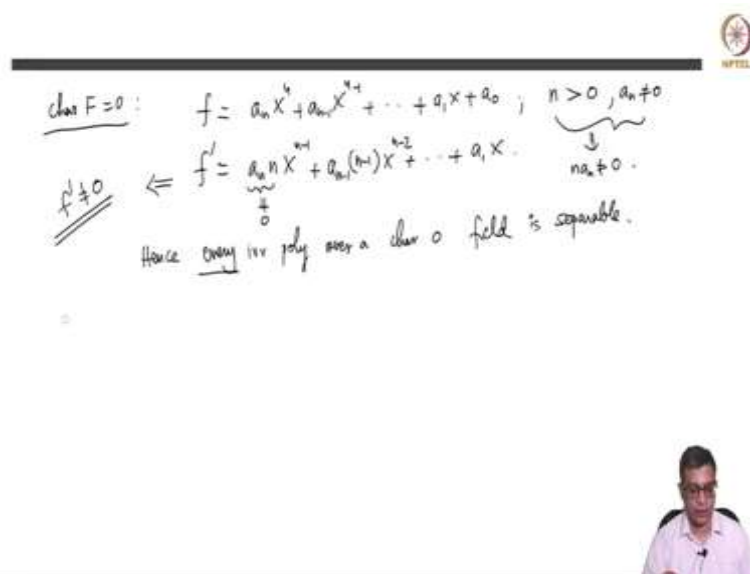 NPTEL
char F = 0 : f = aₙxⁿ + aₙ₋₁xⁿ⁻¹ + ·· + a₁x + a₀ ; n > 0 , aₙ ≠ 0
f' ≠ 0 ⇐ f' = aₙ n xⁿ⁻¹ + aₙ₋₁(n-1) xⁿ⁻² + ·· + a₁ x . ⇓ naₙ ≠ 0 .
≠ 0
Hence every irr poly over a char 0 field is separable.